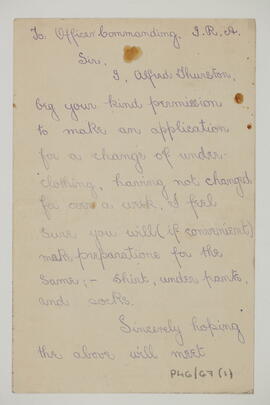 To. Officer Commanding. I.R.A.
Sir.
I, Alfred Thurston,
beg your kind permission
to make an application
for a change of under-
clothing, having not changed
for over a week, I feel
sure you will (if convenient)
make preparations for the
same; - shirt, under pants,
and socks.
Sincerely hoping
the above will meet
P46/67(1)